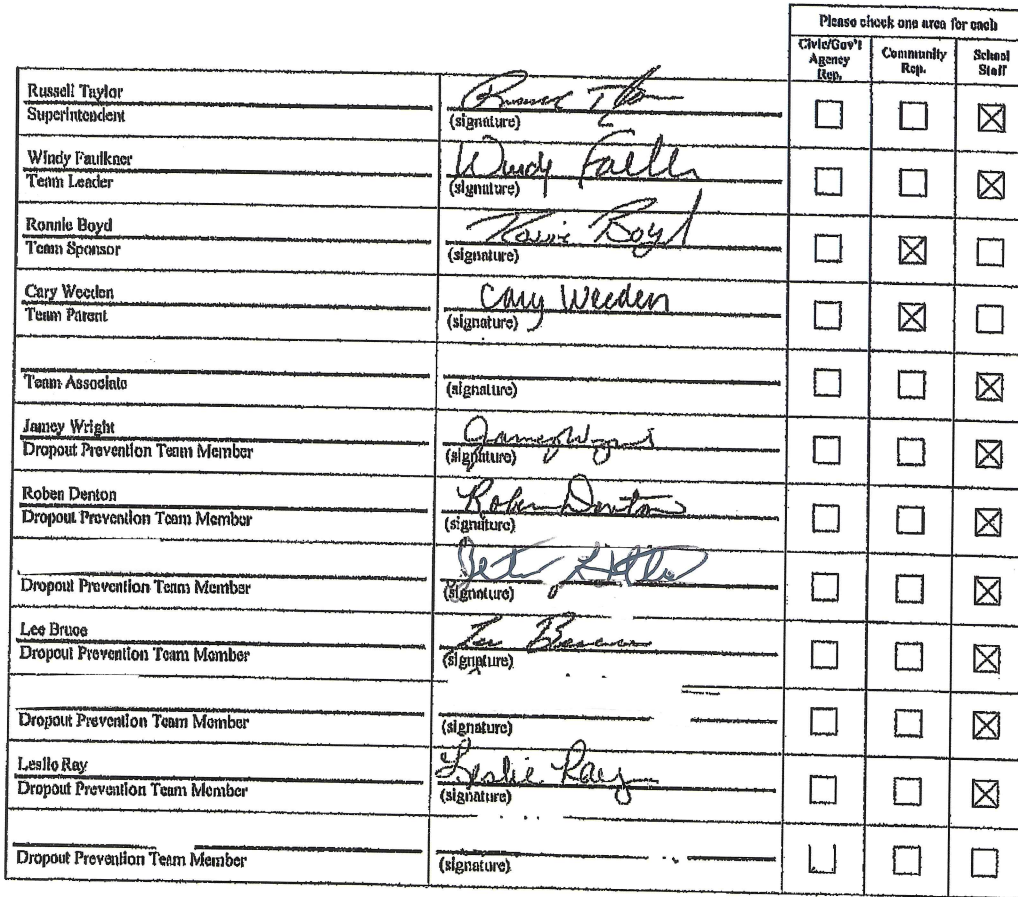 Please check one area for each
Civic/Gov't
Agency
Rep.
Community
Rep.
School
Staff
Russell Taylor
Superintendent
(signature)
Windy Faulkner
Team Leader
Windy
(signature)
Ronnie Boyd
Team Sponsor
Boyd
(signature)
Cary Weeden
Team Parent
Cary Weeden
(signature)
Team Associate
(signature)
Jamey Wright
Dropout Prevention Team Member
(signature)
Roben Denton
Dropout Prevention Team Member
Roben Denton
(signature)
Dropout Prevention Team Member
(signature)
Lee Bruce
Dropout Prevention Team Member
(signature)
Dropout Prevention Team Member
(signature)
Leslie Ray
Dropout Prevention Team Member
Leslie Ray
(signature)
Dropout Prevention Team Member
(signature)